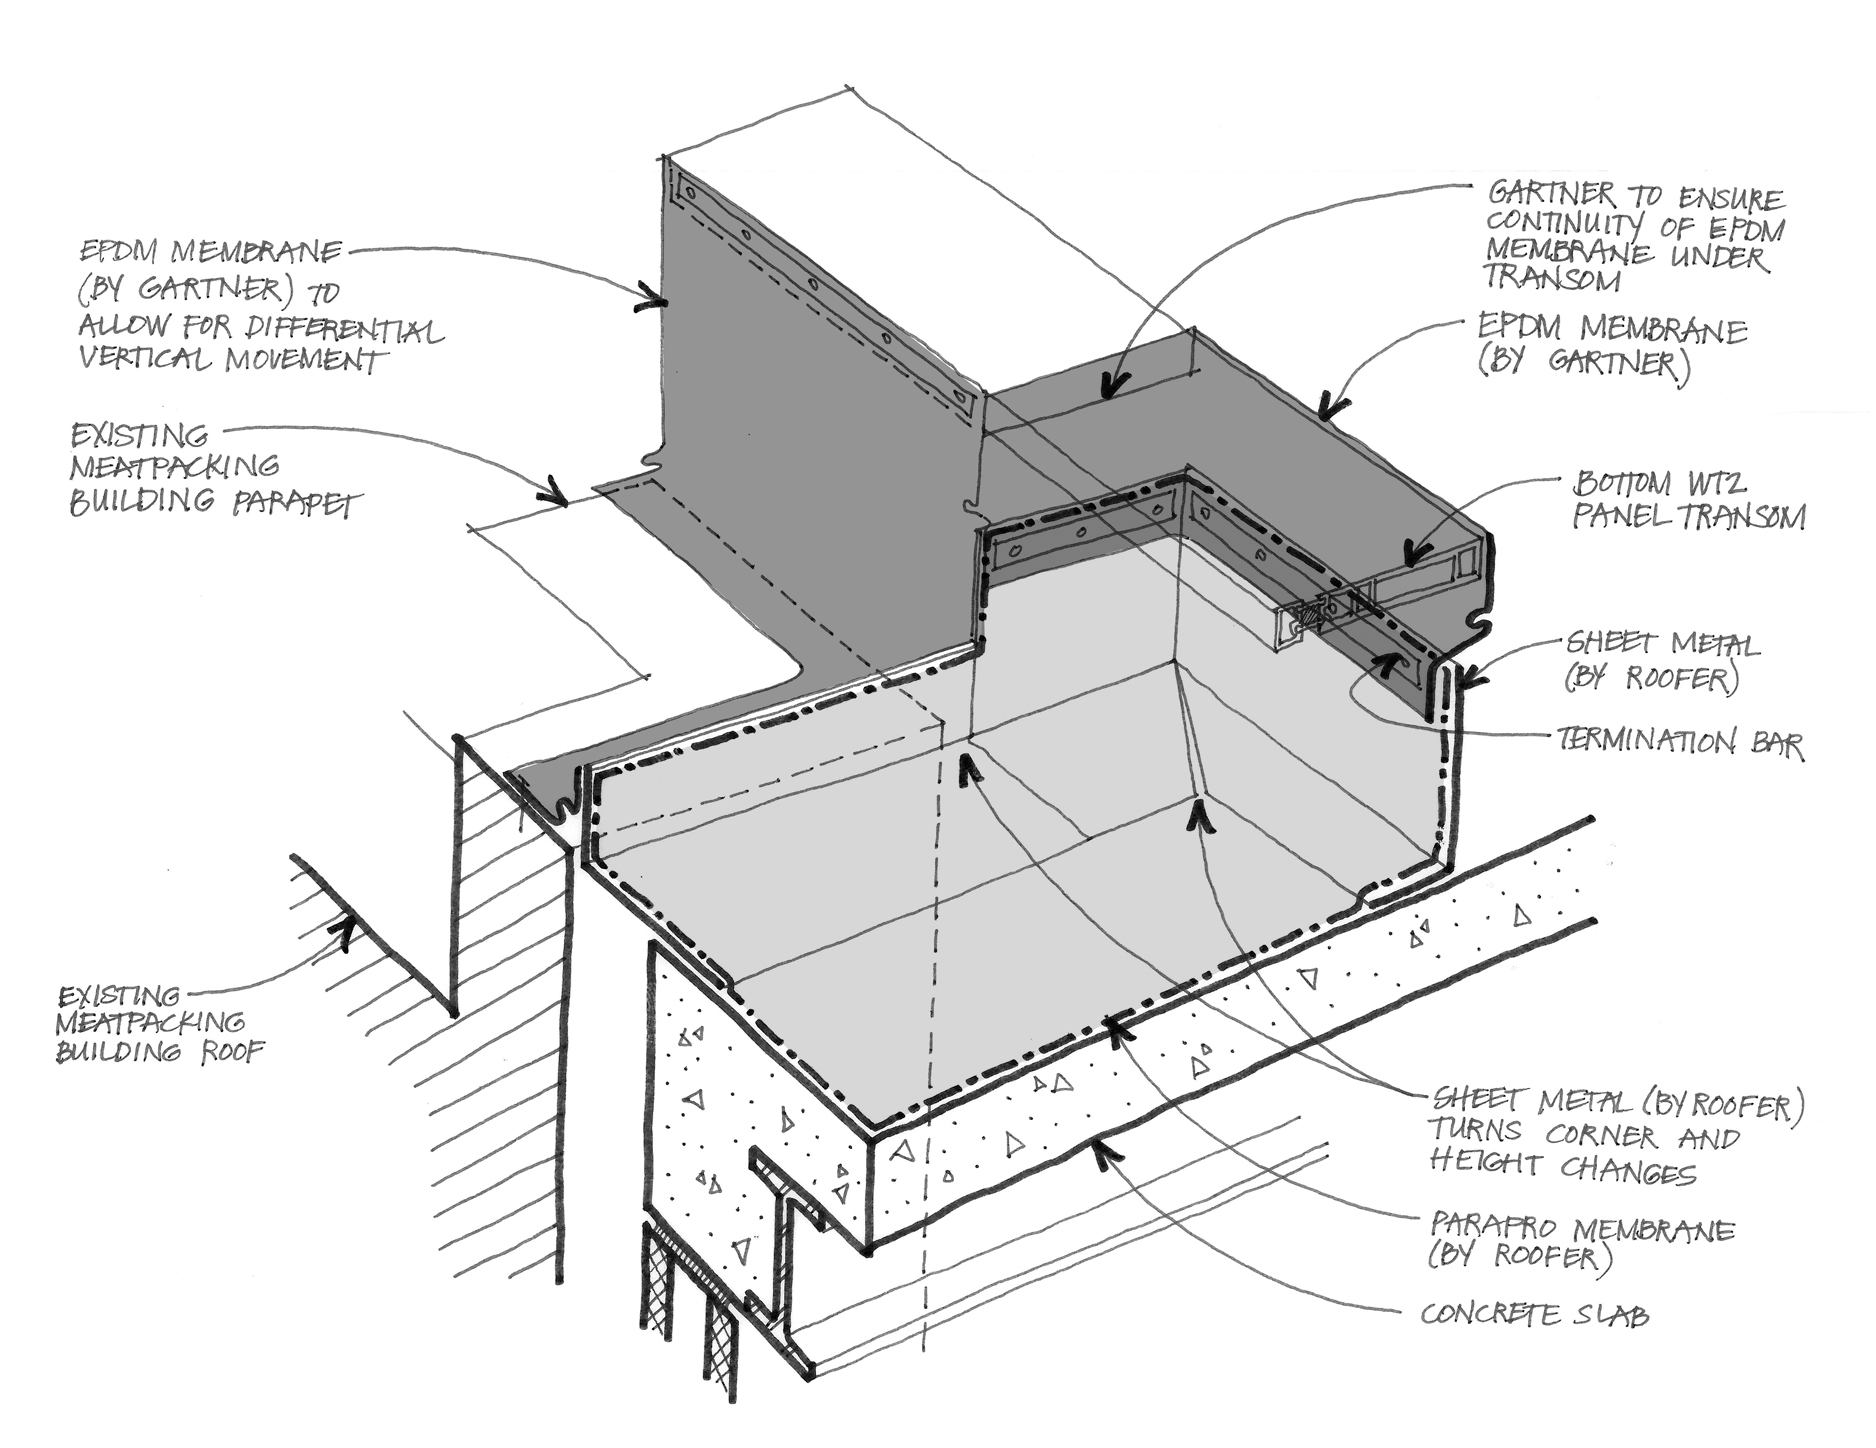 EPDM MEMBRANE
(BY GARTNER) TO
ALLOW FOR DIFFERENTIAL
VERTICAL MOVEMENT
EXISTING
MEATPACKING
BUILDING PARAPET
EXISTING
MEATPACKING
BUILDING ROOF
GARTNER TO ENSURE
CONTINUITY OF EPDM
MEMBRANE UNDER
TRANSOM
EPDM MEMBRANE
(BY GARTNER)
BOTTOM WT2
PANEL TRANSOM
SHEET METAL
(BY ROOFER)
TERMINATION BAR
SHEET METAL (BY ROOFER)
TURNS CORNER AND
HEIGHT CHANGES
PARAPRO MEMBRANE
(BY ROOFER)
CONCRETE SLAB